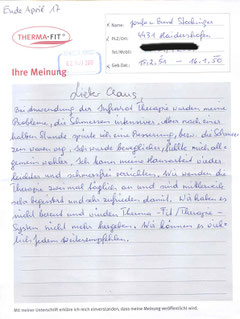 Ende April 17
THERMA-FIT®
Name:
Plz/Ort: 4431 Haidershofen
Tel./Mobil:
Geb.Dat.: 15.2.51 - 16.1.50
Ihre Meinung
Liebe Claus,
Bei Anwendung der Infrarot Therapie wurden meine
Probleme, die Schmerzen intensiver. Aber nach einer
halben Stunde spürte ich eine Besserung, bzw. die Schmer-
zen waren weg. Ich wurde beweglicher, fühlte mich all-
gemein wohler. Ich kann meine Hausarbeit wieder
leichter und schmerzfrei verrichten. Wir wenden die
Therapie zweimal täglich an und sind mittlerweile
sehr begeistert und sehr zufrieden damit. Wir haben es
nicht bereut und würden Therma-Fit/Therapie-
System nicht mehr hergeben. Wir können es wirk-
lich jedem weiterempfehlen.
Mit meiner Unterschrift erkläre ich mich einverstanden, dass meine Meinung veröffentlicht wird.